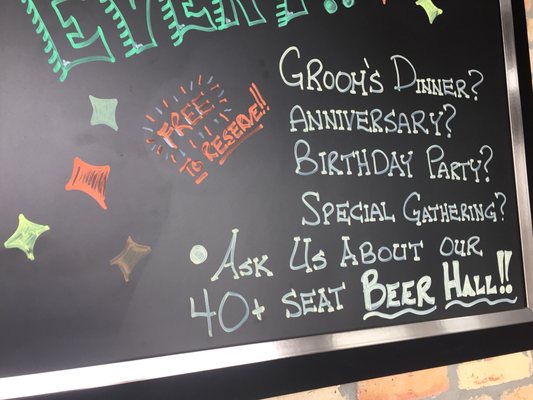 EVENT!!
FREE
TO RESERVE!!
GROOM'S DINNER?
ANNIVERSARY?
BIRTHDAY PARTY?
SPECIAL GATHERING?
• ASK US ABOUT OUR
40+ SEAT BEER HALL!!